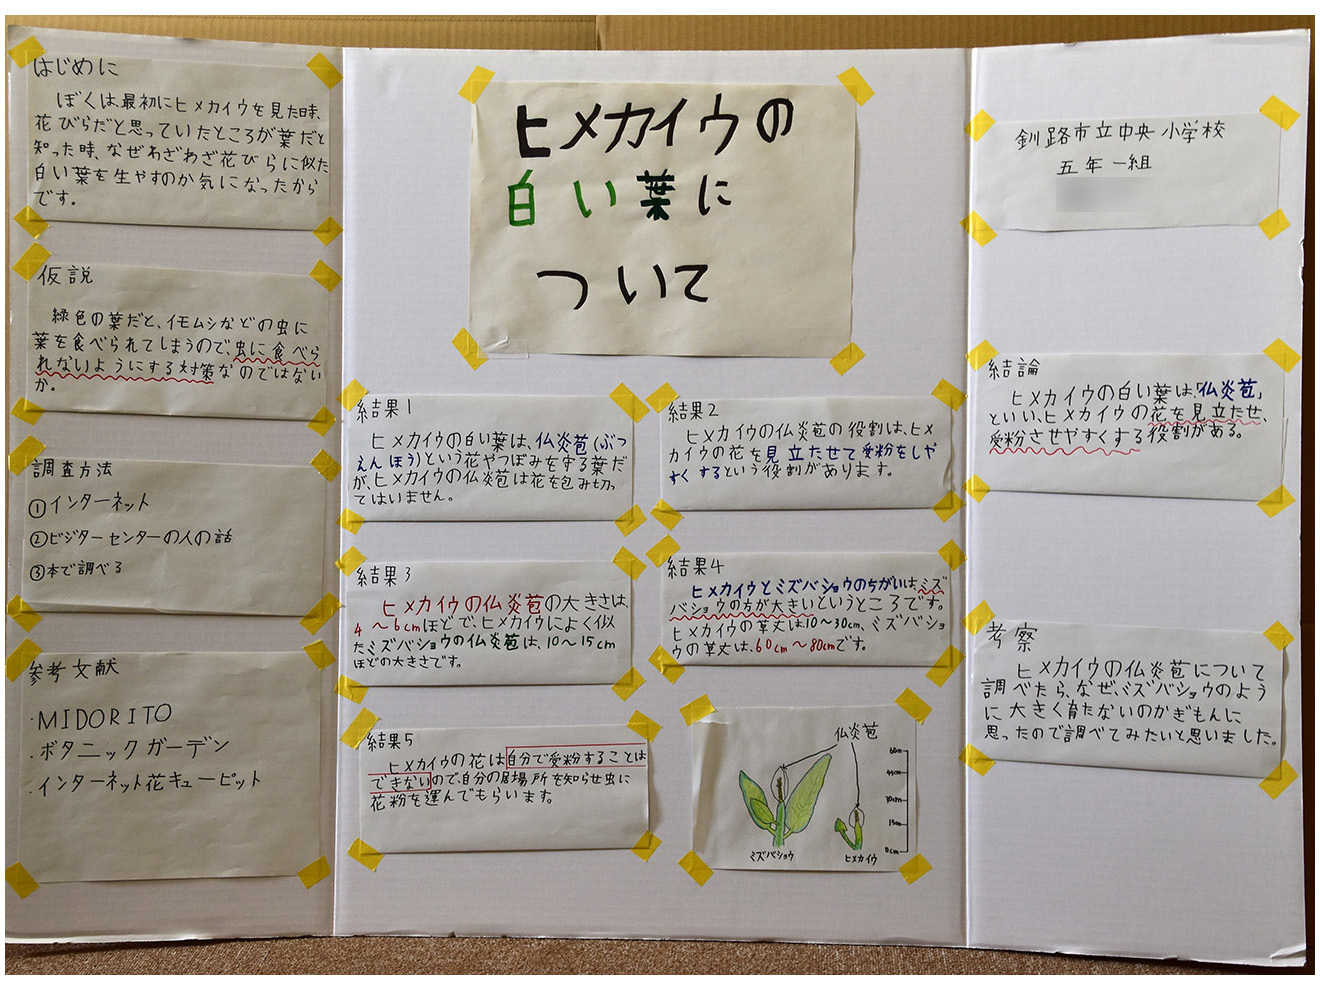 はじめに
ぼくは、最初にヒメカイウを見た時、
花びらだと思っていたところが葉だと
知った時、なぜわざわざ花びらに似た
白い葉を生やすのか気になったから
です。
仮説
緑色の葉だと、イモムシなどの虫に
葉を食べられてしまうので、虫に食べら
れないようにする対策なのではない
か。
調査方法
①インターネット
②ビジターセンターの人の話
③本で調べる
参考文献
・MIDORITO
・ボタニックガーデン
・インターネット花キューピット
ヒメカイウの
白い葉に
ついて
結果1
ヒメカイウの白い葉は、仏炎苞(ぶつ
えんほう)という花やつぼみを守る葉だ
が、ヒメカイウの仏炎苞は花を包み切っ
てはいません。
結果2
ヒメカイウの仏炎苞の役割は、ヒメ
カイウの花を見立たせて受粉をしや
すくするという役割があります。
結果3
ヒメカイウの仏炎苞の大きさは、
4～6cmほどで、ヒメカイウによく似
たミズバショウの仏炎苞は、10～15cm
ほどの大きさです。
結果4
ヒメカイウとミズバショウのちがいはミズ
バショウの方が大きいというところです。
ヒメカイウの草丈は10～30cm、ミズバショ
ウの草丈は、60cm～80cmです。
結果5
ヒメカイウの花は自分で受粉することは
できないので、自分の居場所を知らせ虫に
花粉を運んでもらいます。
仏炎苞
60cm
45cm
30cm
15cm
0cm
ミズバショウ
ヒメカイウ
釧路市立中央小学校
五年一組
結論
ヒメカイウの白い葉は、「仏炎苞」
といい、ヒメカイウの花を見立たせ、
受粉させやすくする役割がある。
考察
ヒメカイウの仏炎苞について
調べたら、なぜ、ミズバショウのよう
に大きく育たないのかぎもんに
思ったので調べてみたいと思いました。